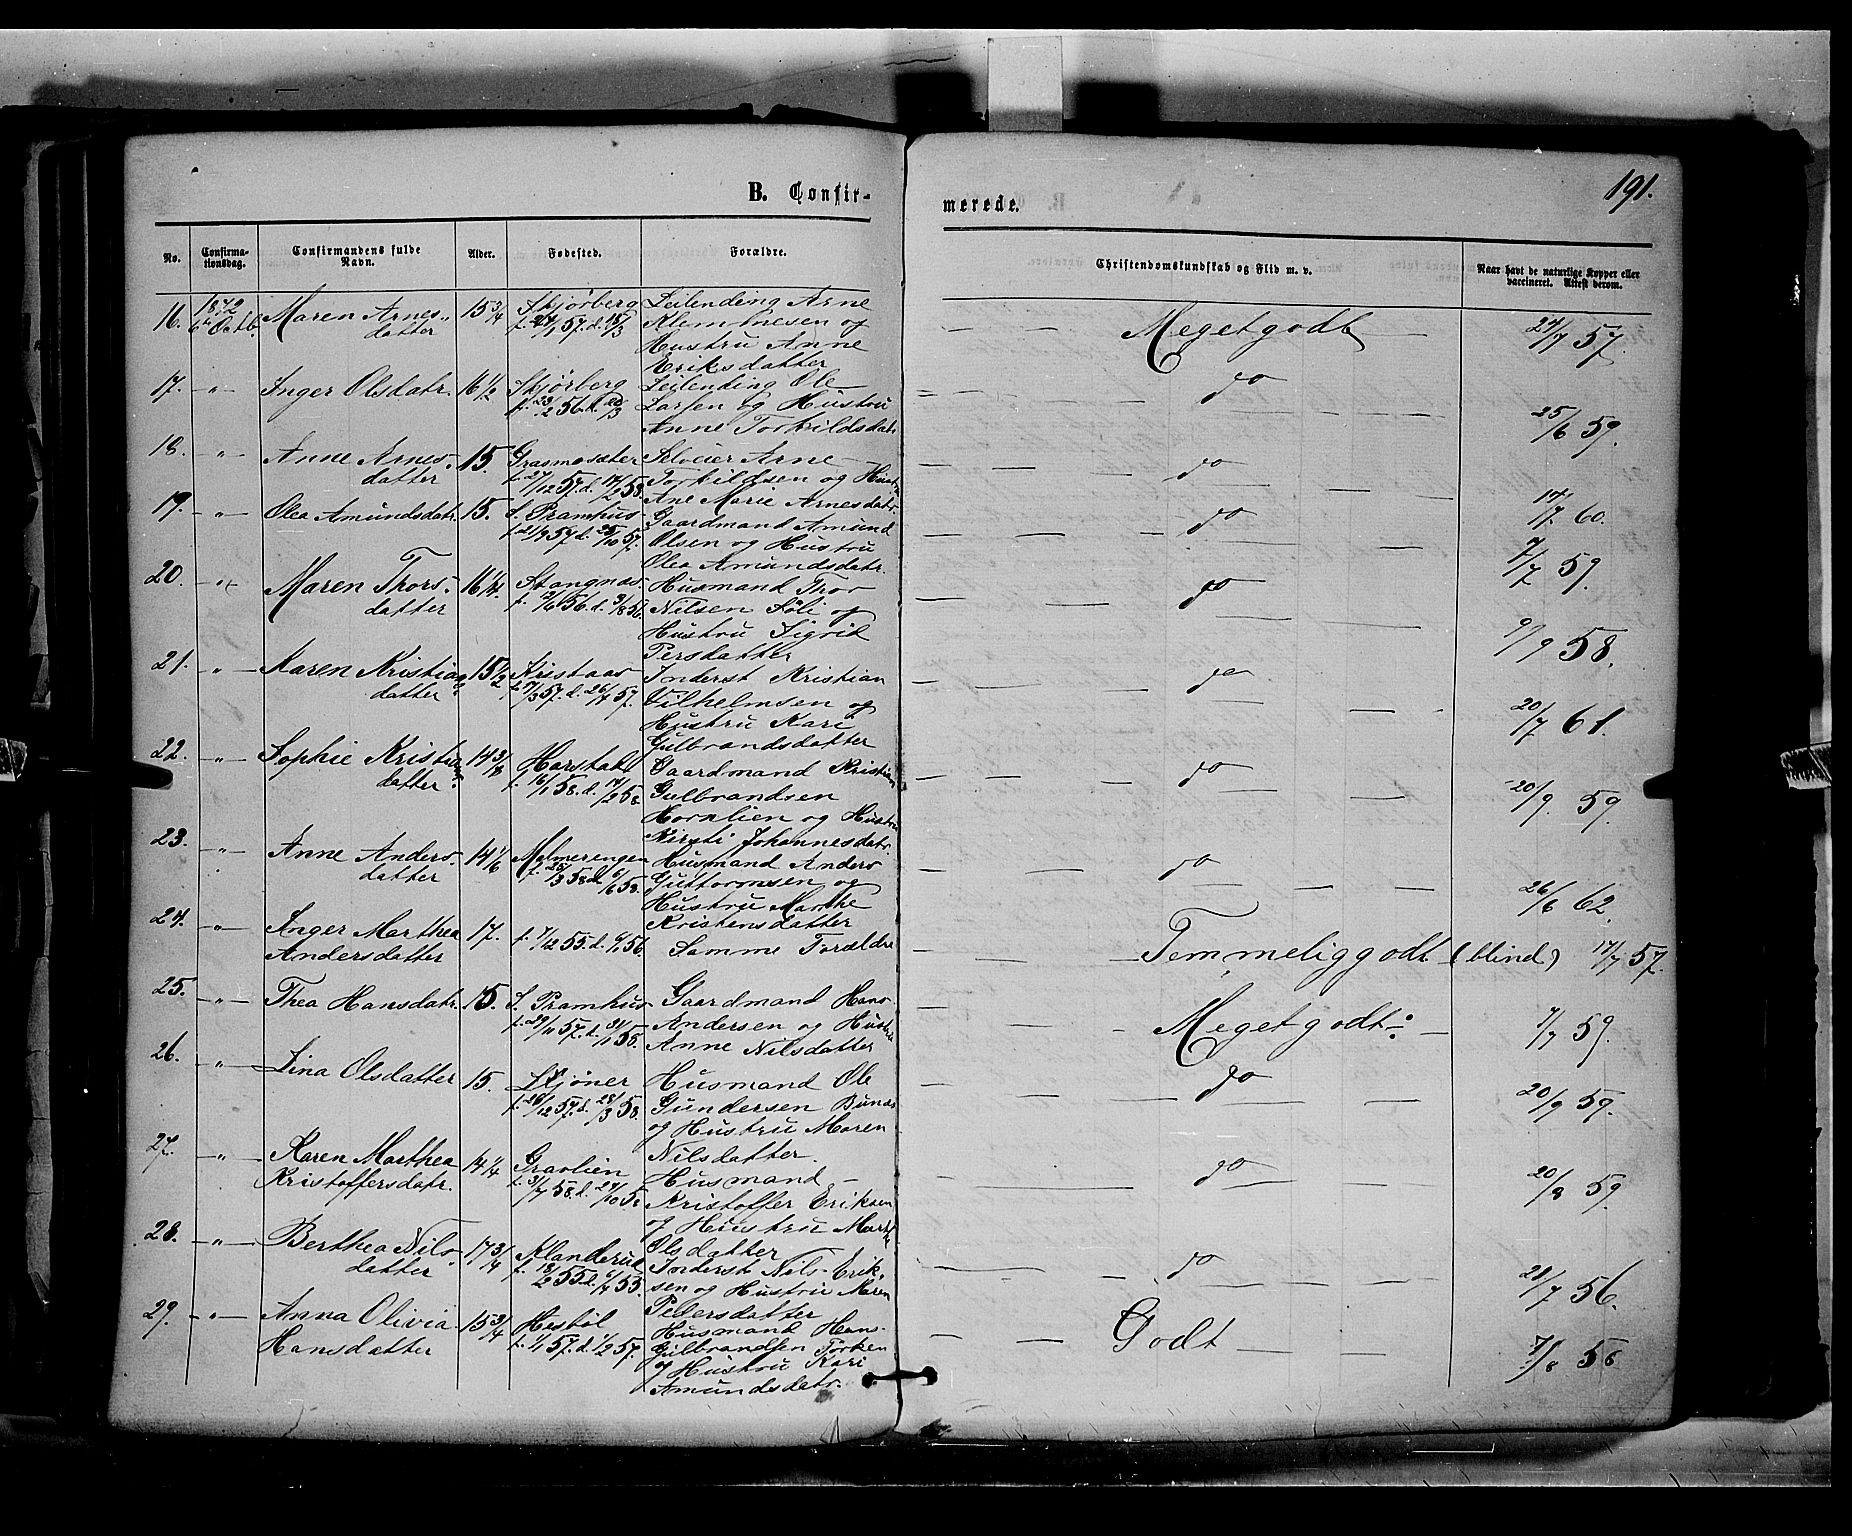 B. Confirmerede.
191.
No.
Confirmationsdag.
Confirmandens fulde Navn.
Alder.
Fødested.
Forældre.
Christendomskundskab og Flid m. v.
Naar havt de naturlige Kopper eller vaccineret. Attest derom.
16. 1872 6te Octb. Maren Arnesdatter 15 3/4 Skjørberg f. 24/1 57. d. 18/3 Leilending Arne
og
Hustru Anne
Eriksdatter
— — Meget godt — 24/7 57.
17. -"- Inger Olsdatr. 16 1/2 Skjørberg f. 23/2 56. d. /3 Leilending Ole
Larsen og Hustru
Anne Torkildsdatr.
— — do — 25/6 59.
18. -"- Anne Arnesdatter 15. Grasmosæter f. 27/12 57. d. 14/2 58. Selveier Arne
Torkildsen og Hustru
Ane Marie Arnesdatr.
— — do — 17/7 60.
19. -"- Olea Amundsdatr. 15. S. Pramhus f. 21/9 57 d. 25/10 57. Gaardmand Amund
Olsen og Hustru
Olea Amundsdatr.
— — do — 7/7 59.
20. -"- Maren Thorsdatter 16 1/4 Stangnæs f. 2/6 56. d. 3/8 56. Husmand Thor
Nilsen Søli og
Hustru Sigrid
Persdatter
— — do — 9/9 58.
21. -"- Karen Kristiansdatter 15 1/2 Kristaas f. 7/3 57. d. 26/4 57. Inderst Kristian
Vilhelmsen og
Hustru Kari
Gulbrandsdatter
— — do — 20/7 61.
22. -"- Sophie Kristiansdatter. 14 3/8 Harstabl f. 16/1 58. d. 14/2 58. Gaardmand Kristian
Gulbrandsen
Hornlien og Hustru
Kirsti Johannesdatr.
— — do — 20/9. 59.
23. -"- Anne Andersdatter 14 1/6 Melmerengen f. 25/3 58 d. 6/6 58. Husmand Anders
Guttormsen og
Hustru Marthe
Kristensdatter
— — do — 26/6 62.
24. -"- Inger Marthea Andersdatter 17. f. 7/12 55. d. 6/1 56. Samme Forældre
— — Temmelig godt (blind) 17/7 57.
25. -"- Thea Hansdatr. 15. S. Pramhus f. 29/11 57. d. 31/1 58. Gaardmand Hans
Andersen og Hustru
Anne Nilsdatter
— — Meget godt. — 7/7 59.
26. -"- Lina Olsdatter 15. Skjøner f. 20/12 57. d. 28/3 58. Husmand Ole
Gundersen Bunæs
og Hustru Maren
Nilsdatter.
— — do — 20/9 59.
27. -"- Karen Marthea Kristoffersdatr. 14 1/4 Gravlien f. 31/7 58. d. 24/10 58 Husmand
Kristoffer Eriksen
og Hustru Marthe
Olsdatter
— — do — 20/9 59.
28. -"- Berthea Nilsdatter 17 3/4 Klanderud f. 18/2 55. d. 6/4 55. Inderst Nils Eriksen
og Hustru Maren
Pedersdatter
— — do — 28/7 56.
29. -"- Anna Olivia Hansdatter 15 3/4 Hestøl f. 1/1 57. d. 1/2 57. Husmand Hans
Gulbrandsen Torken
og Hustru Kari
Amundsdatr.
— — Godt — 7/8 58